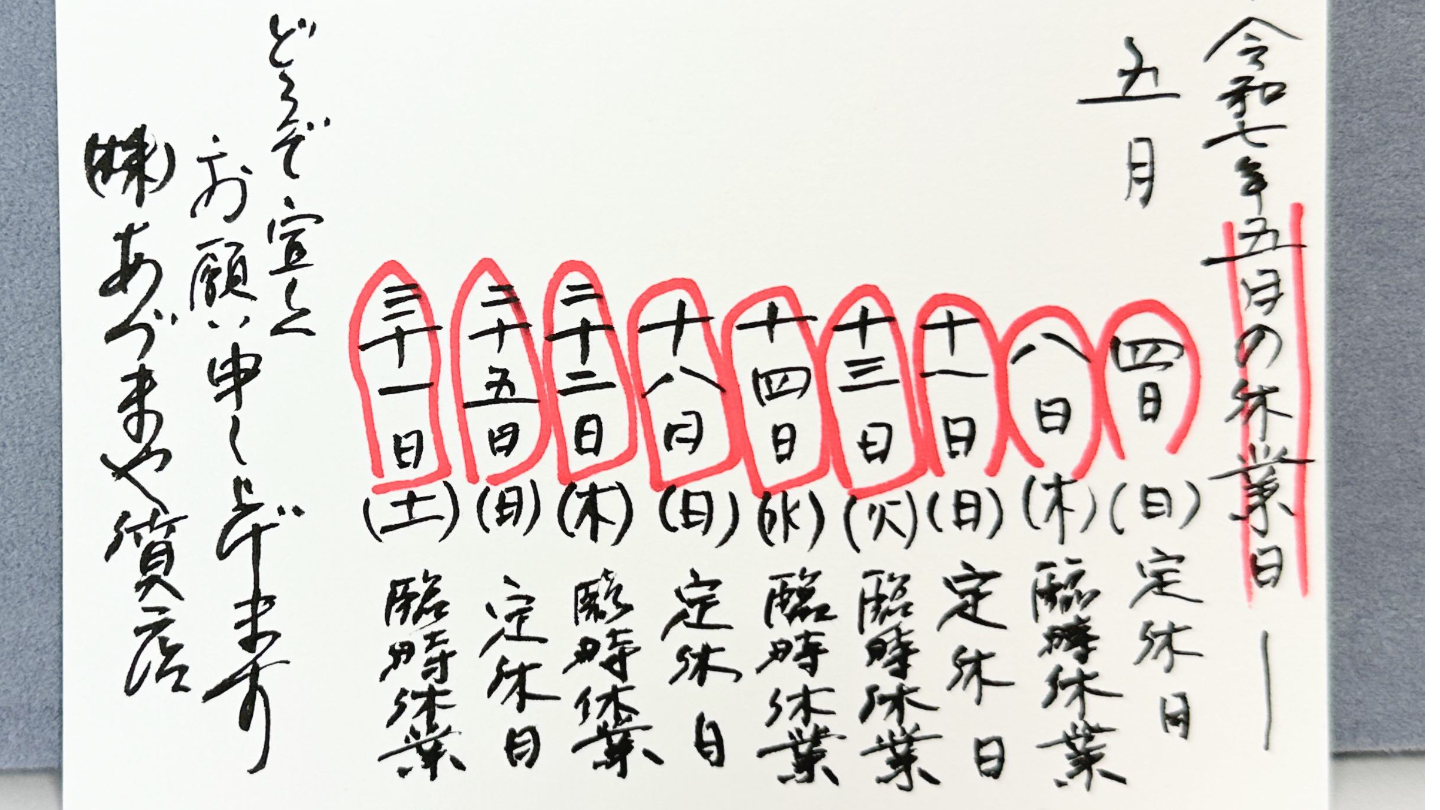 令和七年五月の休業日
五月
四日(日)定休日
八日(木)臨時休業
十一日(日)定休日
十三日(火)臨時休業
十四日(水)臨時休業
十八日(日)定休日
二十二日(木)臨時休業
二十五日(日)定休日
三十一日(土)臨時休業
どうぞ宜しく
お願い申し上げます
(株)あづまや質店